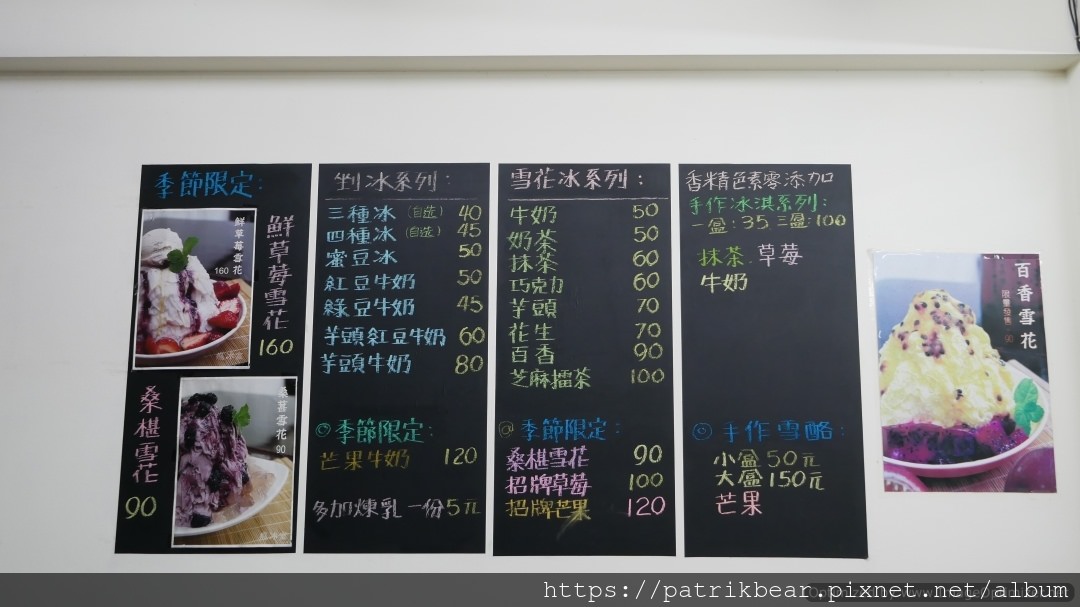 季節限定:
鮮草莓雪花
160
鮮草莓雪花
160
桑椹雪花
90
桑葚雪花
90
剉冰系列:
三種冰(自选) 40
四種冰(自选) 45
蜜豆冰 50
紅豆牛奶 50
綠豆牛奶 45
芋頭紅豆牛奶 60
芋頭牛奶 80
◎季節限定:
芒果牛奶 120
多加煉乳一份5元
雪花冰系列:
牛奶 50
奶茶 50
抹茶 60
巧克力 60
芋頭 70
花生 70
百香 90
芝麻擂茶 100
@季節限定:
桑椹雪花 90
招牌草莓 100
招牌芒果 120
香精色素零添加
手作冰淇系列:
一盒:35 三盒:100
抹茶.草莓
牛奶
◎手作雪酪:
小盒50元
大盒150元
芒果
百香雪花
https://patrikbear.pixnet.net/album